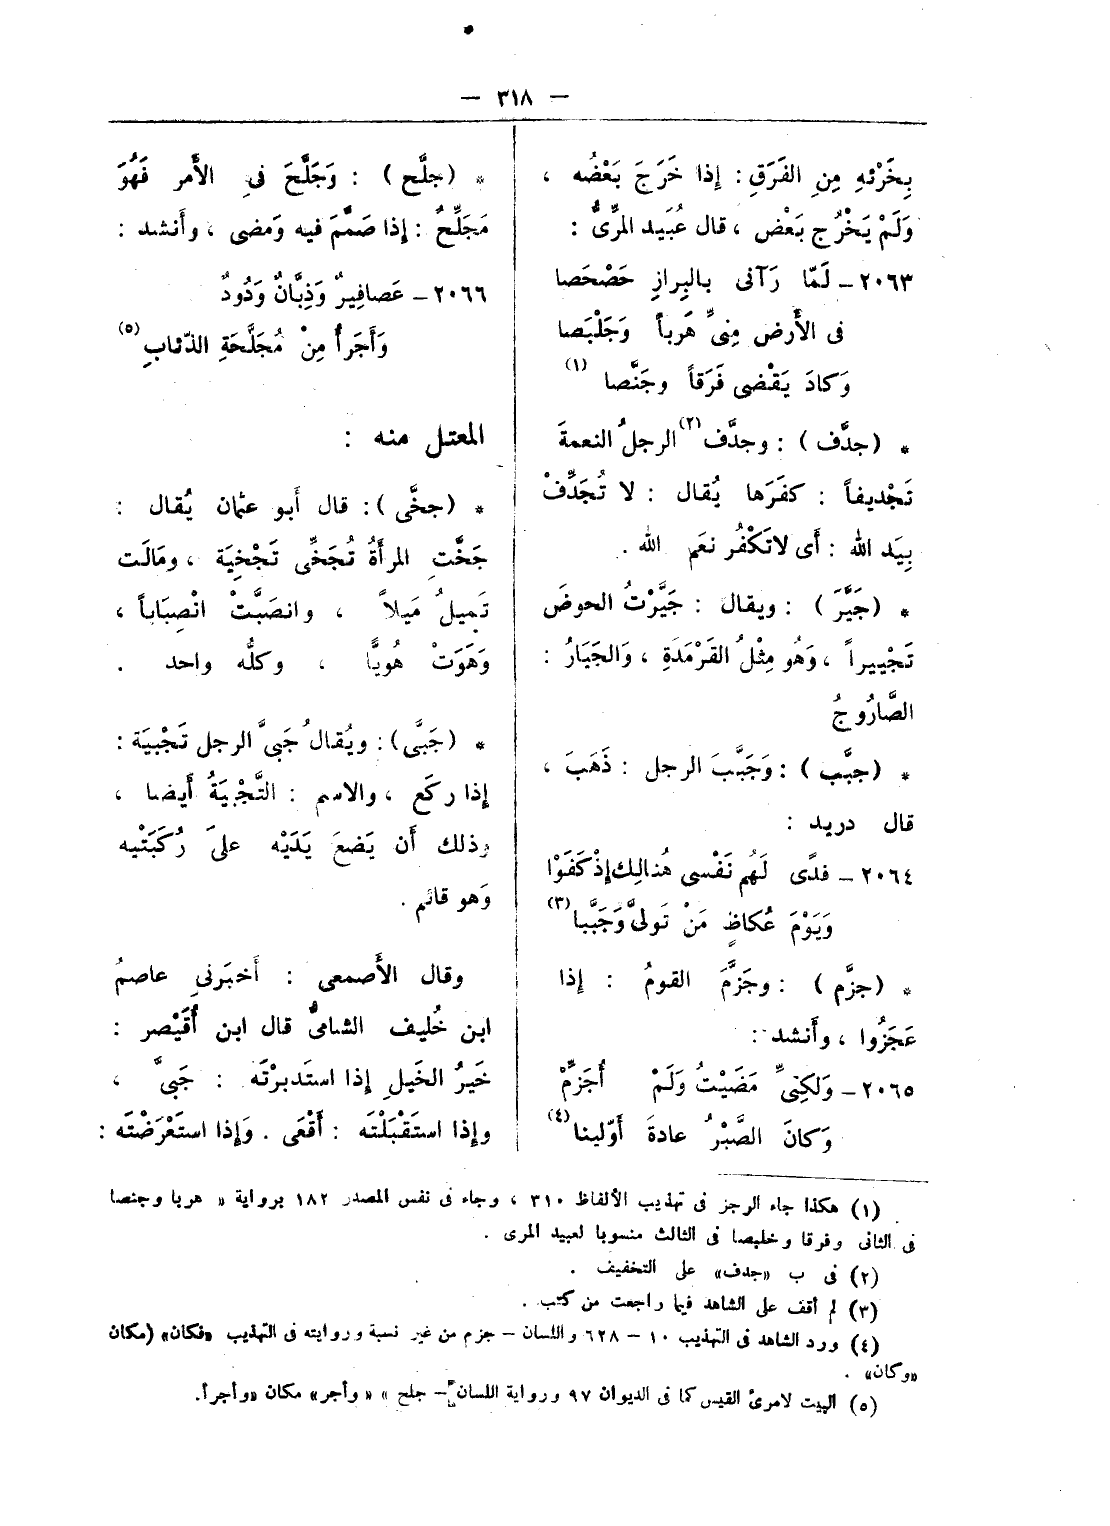 — ٣١٨ —
بِخَرْئهِ مِنِ الفَرَقِ : إذا خَرَجَ بَعْضُه ،
وَلَمْ يَخْرُج بَعْض ، قال عُبَيد المرِّىُّ :
٢٠٦٣ – لَمّا رَآنى بالبِرازِ حَصْحَصا
فى الأَرض مِنىِّ هَرباً وَجَلْبَصا
وَكادَ يَقْضى فَرَقاً وجَنَّصا (١)
* (جدَّف) : وجدَّف (٢) الرجلُ النعمةَ
تَجْديفاً : كفَرَها يُقال : لا تُجَدِّفْ
بِيَد الله : أى لاتَكْفُر نعَم الله .
* (جَيَّرَ) : ويقال : جَيَّرْتُ الحوضَ
تَجْييراً ، وَهُو مِثْلُ القَرْمَدَةِ ، وَالجَيَارُ :
الصَّارُوجُ
* (جبَّب) : وَجَبَّبَ الرجل : ذَهَبَ ،
قال دريد :
٢٠٦٤ – فدًى لَهُم نَفْسى هُنالِك إذْ كَفَوْا
وَيَوْمَ عُكاظٍ مَنْ تَولىَّ وَجَبَّبا (٣)
* (جزَّم) : وجَزَّمَ القومُ : إذا
عَجَزُوا ، وأَنشد :
٢٠٦٥ – وَلكِنىِّ مَضَيْتُ وَلَمْ أُجَزِّمْ
وَكانَ الصَّبْرُ عادةَ أَوّلينا (٤)
* (جلَّح) : وَجَلَّحَ فىِ الأَمر فَهُوَ
مَجَلِّحٌ : إذا صَمَّمَ فيه وَمضى ، وأَنشد :
٢٠٦٦ – عَصافِيرٌ وَذِبَّانٌ وَدُودٌ
وَأَجَرأُ مِنْ مُجَلَّحَةِ الذّئابِ (٥)
المعتل منه :
* (جخَّى) : قال أَبو عثمان يُقال :
جَخَّتِ المرأَةُ تُجَخِّى تَجْخِيَة ، ومَالَت
تَميلُ مَيلاً ، وانصَبَّتْ انْصِبَاباً ،
وَهَوَتْ هُويًّا ، وكلُّه واحد .
* (جَبَّى) : ويُقالُ جَبىَّ الرجل تَجْبيَة :
إذا ركَع ، والاسم : التَّجْبيَةُ أَيضا ،
وذلك أَن يَضعَ يَدَيْه علىَ رُكَبَتْيه
وَهو قائم .
وقال الأَصمعى : أَخبَرنىِ عاصمُ
ابن خُليف الشامىُّ قال ابن أُقَيْصر :
خَيرُ الخَيلِ إذا استَدبرْتَه : جَبىَّ ،
وإذا استَقْبَلْتَه : أَقْعَى . وَإذا استَعْرَضْتَه :
(١) هكذا جاء الرجز فى تهذيب الألفاظ ٣١٠ ، وجاء فى نفس المصدر ١٨٢ برواية « هربا وجنصا
فى الثانى وفرقا وخليصا فى الثالث منسوبا لعبيد المرى .
(٢) فى ب «جدف» على التخفيف .
(٣) لم أقف على الشاهد فيما راجعت من كتب .
(٤) ورد الشاهد فى التهذيب ١٠ – ٦٢٨ واللسان – جزم من غير نسبة وروايته فى التهذيب «فكان» (مكان
«وكان» .
(٥) البيت لامرئ القيس كما فى الديوان ٩٧ ورواية اللسان – جلح » « وأجر» مكان «وأجرأ.